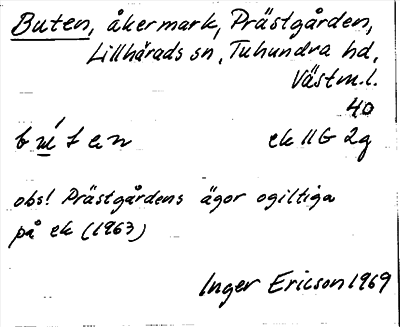 Buten, åkermark, Prästgården,
Lillhårads sn, Tuhundra hd,
Västm.l.
40
bú̲ten ek 11G 2g
obs! Prästgårdens ägor ogiltiga
på ek (1963)
Inger Ericson 1969